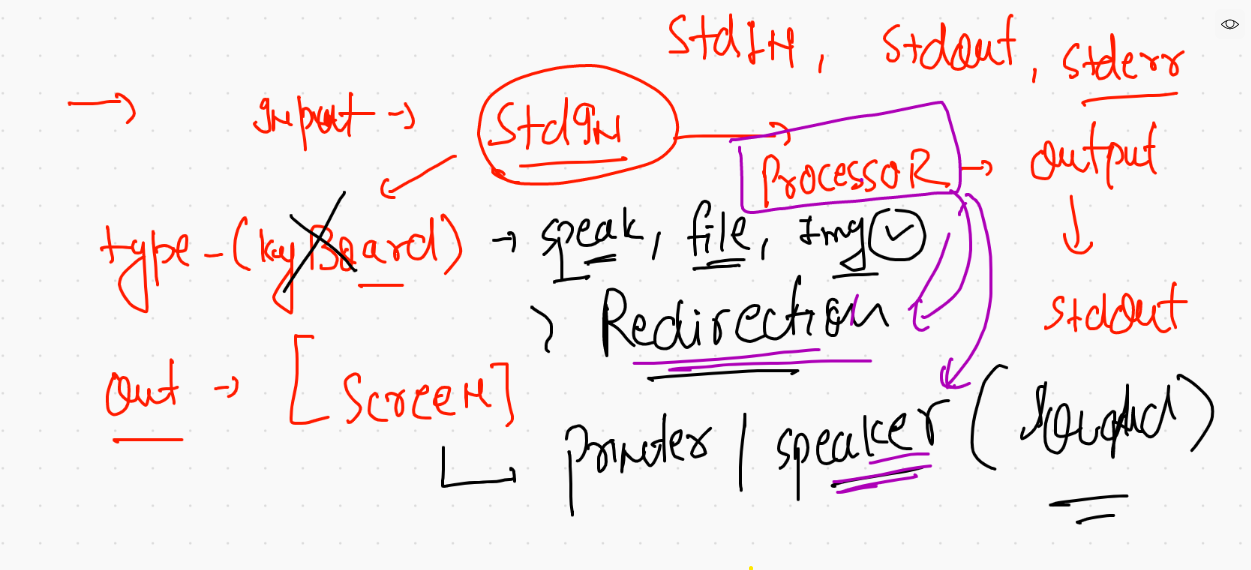 StdIN, Stdout, stderr
Input → StdIN → Processor → output
type - (kyBoard) → speak, file, Img
stdout
> Redirection
out → [Screen]
printer / speaker (sound)